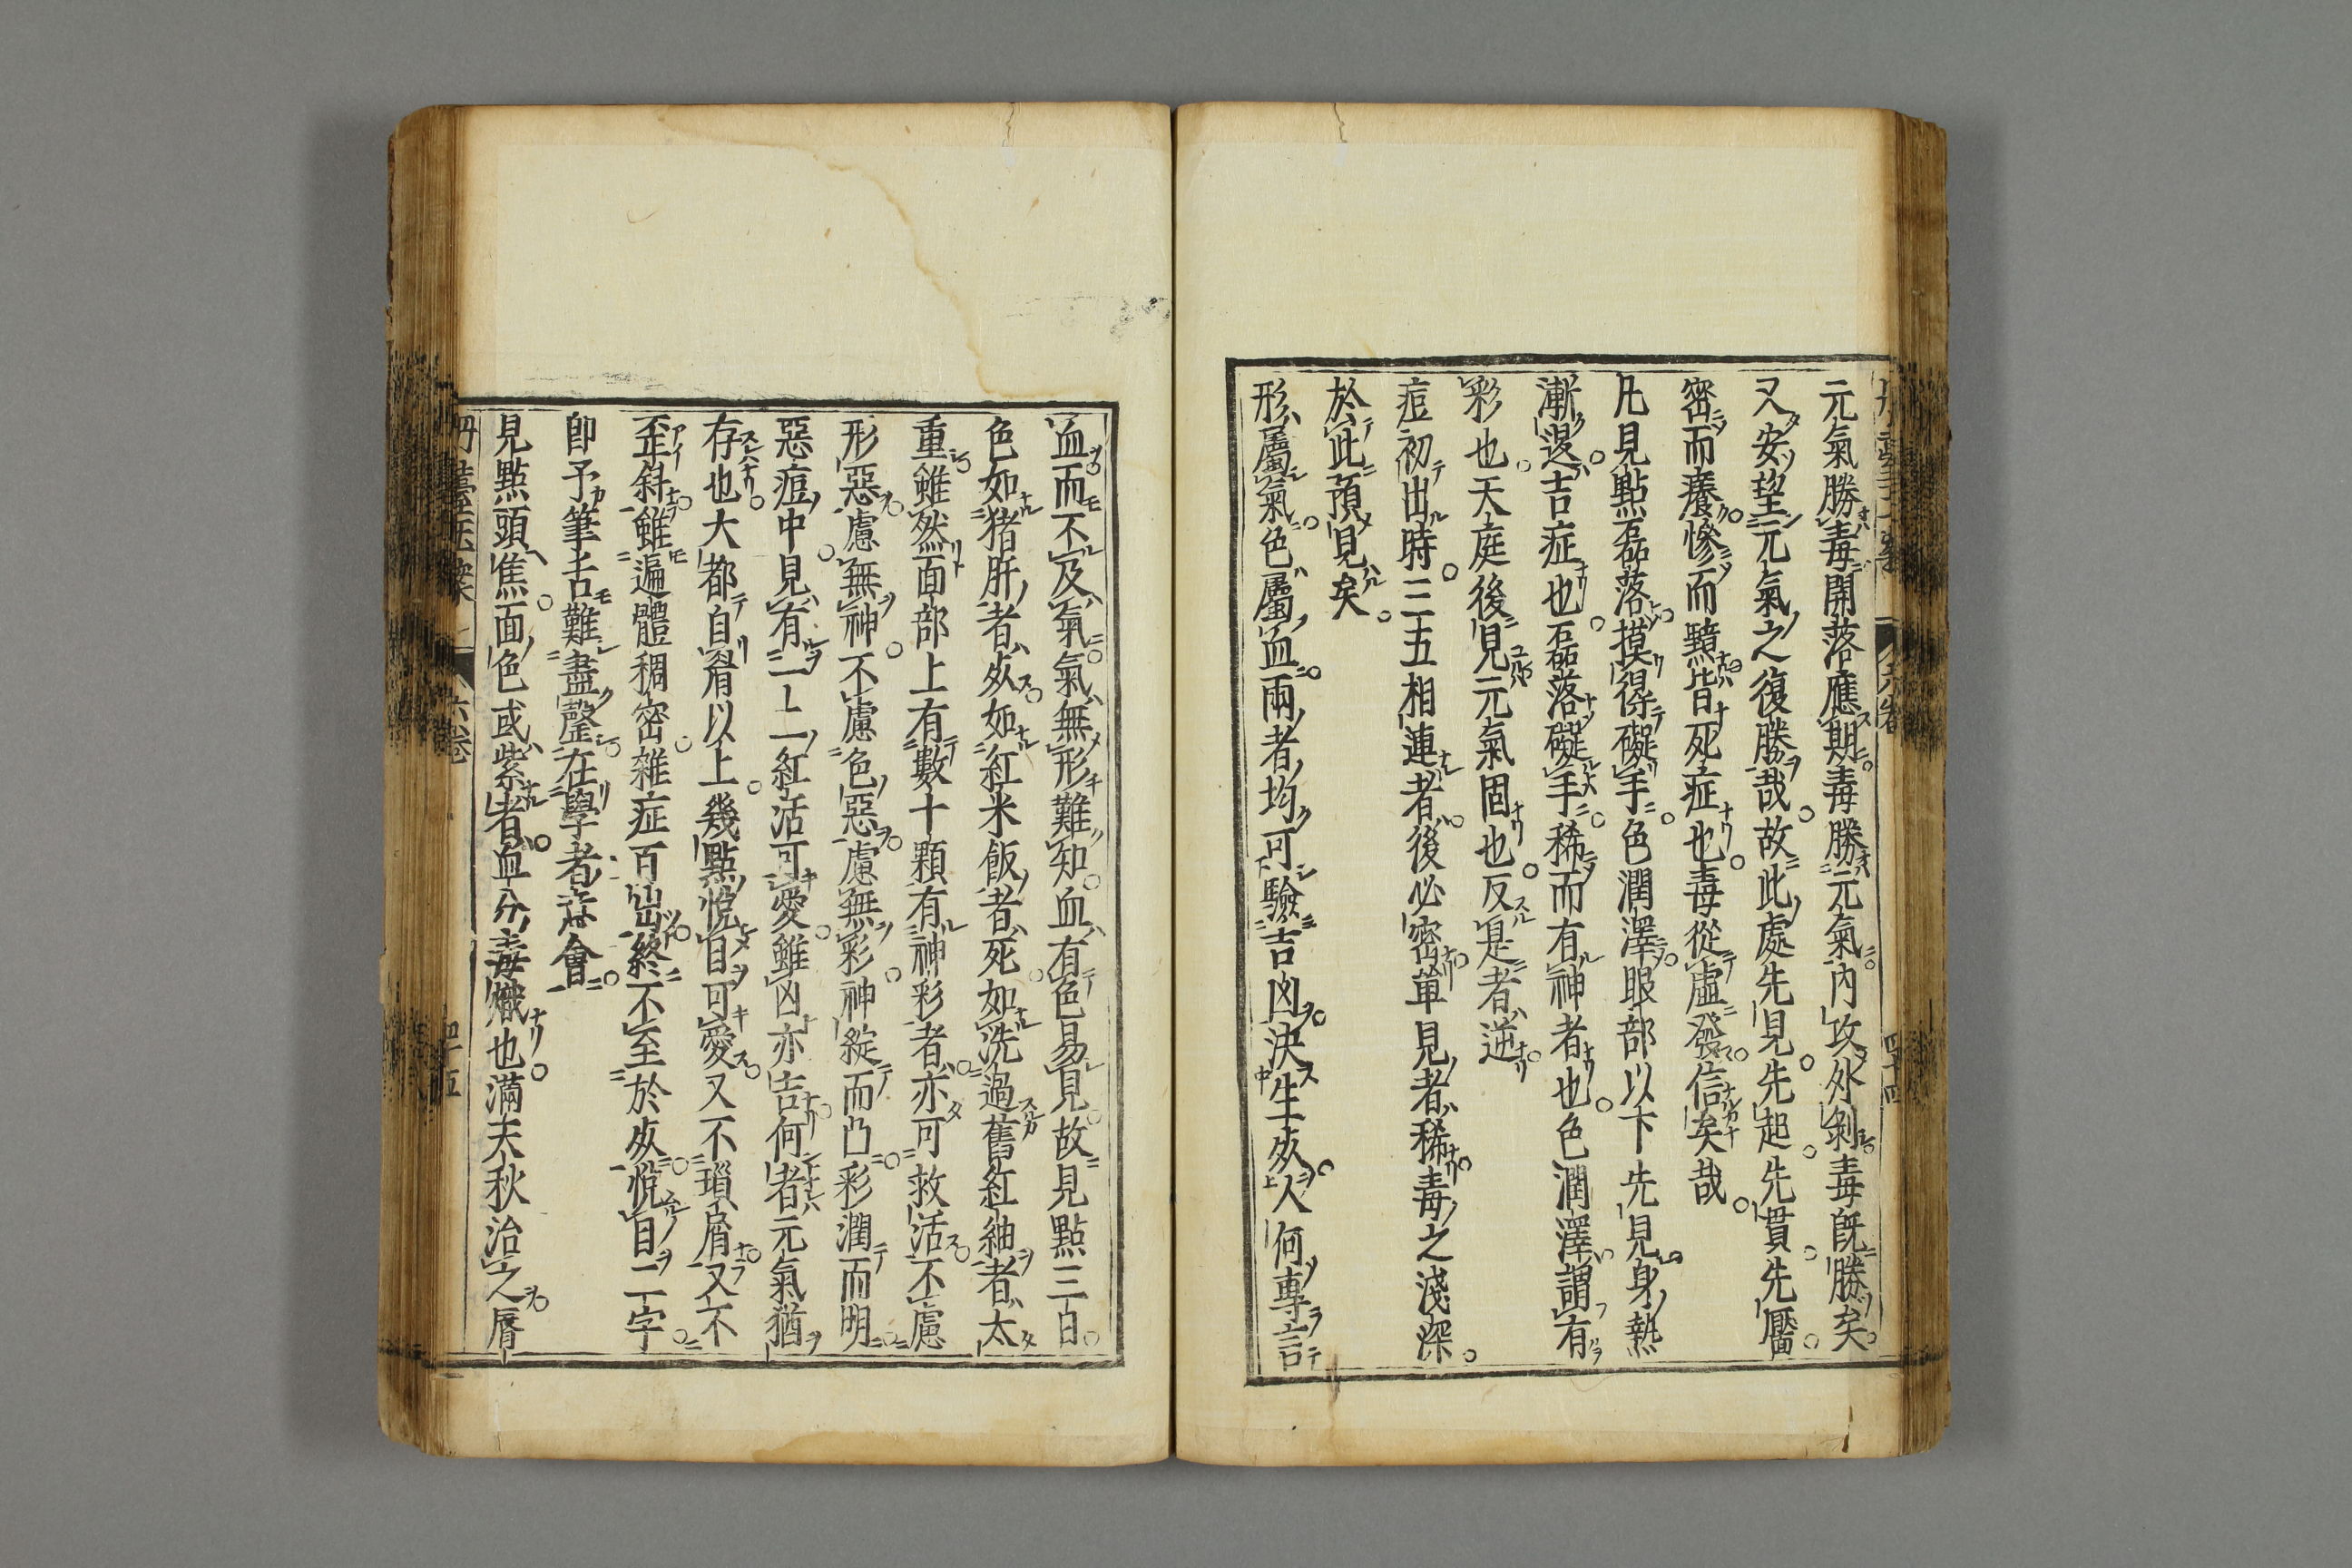 元氣勝毒開落應期毒勝元氣內攻外剝毒既勝矣
又安望元氣之復勝哉故此處先見先起先貫先靨
密而癢慘而黯皆死症也毒從虛發信矣哉
凡見點磊落摸得礙手色潤澤眼部以下先見身熱
漸退吉症也磊落礙手稀而有神者也色潤澤謂有
彩也天庭後見元氣固也反是者逆
痘初出時三五相連者後必密單見者稀毒之淺深
於此預見矣
形屬氣色屬血兩者均可驗吉凶決生死人何專言
血而不及氣氣無形難知血有色易見故見點三日
色如猪肝者死如紅米飯者死如洗過舊紅紬者太
重雖然面部上有數十顆有神彩者亦可救活不慮
形惡慮無神不慮色惡慮無彩神綻而凸彩潤而明
惡痘中見有一上二紅活可愛雖凶亦吉何者元氣猶
存也大都自眉以上幾點悅目可愛又不瑣屑又不
歪斜雖遍體稠密雜症百出終不至於死悅目二字
卽予筆舌難盡罄在學者意會
見點頭焦面色或紫者血分毒熾也滿天秋治之脣
丹臺玉案 六卷 四十五